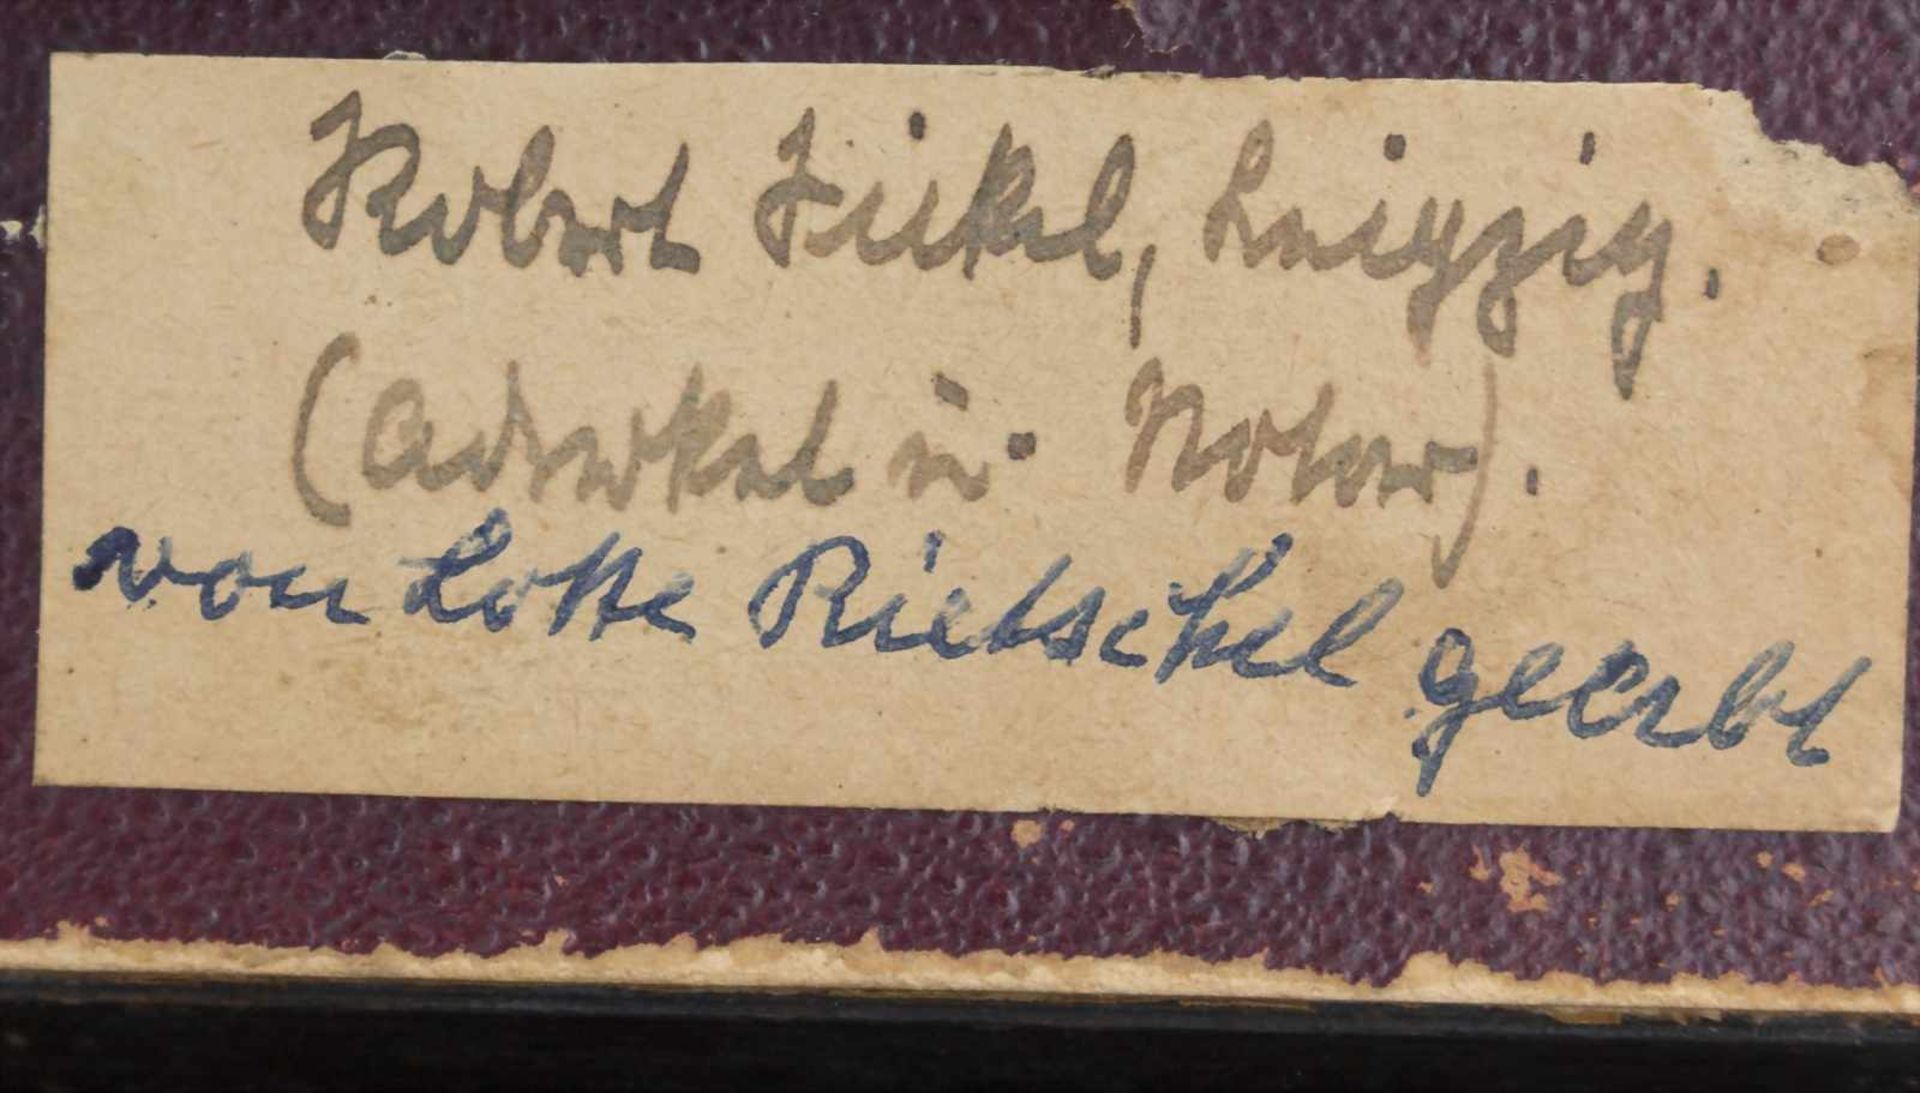 Robert Jickel, Leipzig.
(Advokat u. Notar).
von Lotte Rietschel geerbt